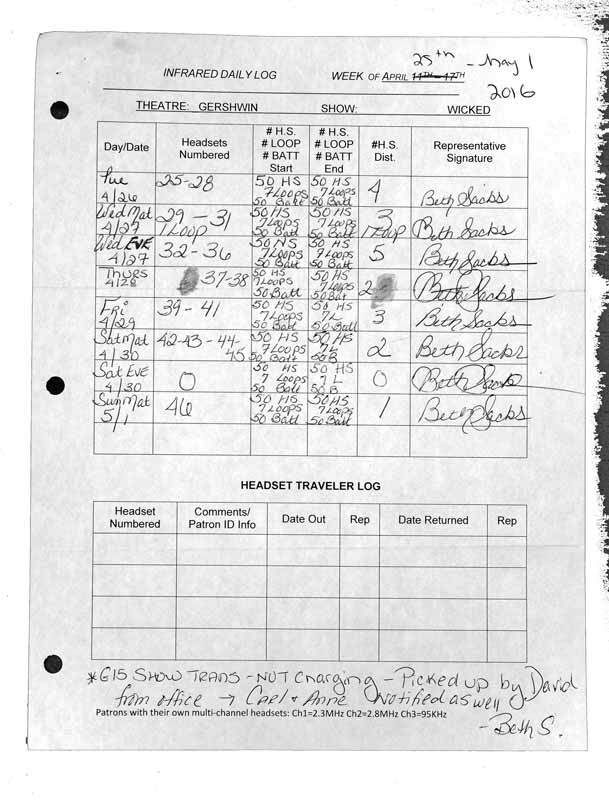 25th - May 1
INFRARED DAILY LOG WEEK OF APRIL 11TH - 17TH
2016
THEATRE: GERSHWIN SHOW: WICKED
Day/Date Headsets Numbered # H.S. # LOOP # BATT Start # H.S. # LOOP # BATT End #H.S. Dist. Representative Signature
Tue 4/26 25-28 50 HS 7 Loops 50 Batt 50 HS 7 Loops 50 Batt 4 Beth Sacks
Wed Mat 4/27 29-31 1 Loop 50 HS 7 Loops 50 Batt 50 HS 7 Loops 50 Batt 3 1 Loop Beth Sacks
Wed EVE 4/27 32-36 50 HS 7 Loops 50 Batt 50 HS 7 Loops 50 Batt 5 Beth Sacks
Thurs 4/28 37-38 50 HS 7 Loops 50 Batt 50 HS 7 Loops 50 Bat 2 Beth Sacks
Fri 4/29 39-41 50 HS 7 Loops 50 Batt 50 HS 7L 50 Batt 3 Beth Sacks
Sat Mat 4/30 42-43-44-45 50 HS 7 Loops 50 Batt 50 HS 7L 50B 2 Beth Sacks
Sat EVE 4/30 0 50 HS 7 Loops 50 Batt 50 HS 7L 50B 0 Beth Sacks
Sun Mat 5/1 46 50 HS 7 Loops 50 Batt 50 HS 7 Loops 50 Batt 1 Beth Sacks
HEADSET TRAVELER LOG
Headset Numbered Comments/ Patron ID Info Date Out Rep Date Returned Rep
*G15 SHOW TRANS - NOT Charging - Picked up by David
from office → Carl + Anne Notified as well
Patrons with their own multi-channel headsets: Ch1=2.3MHz Ch2=2.8MHz Ch3=95KHz
- Beth S.